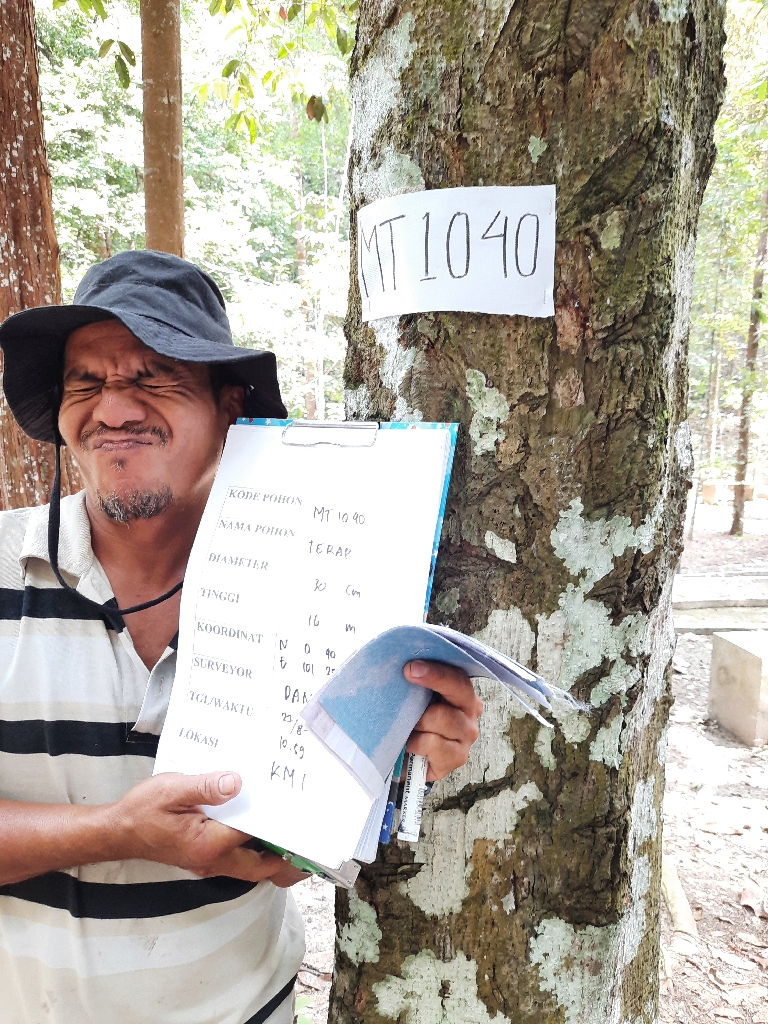 MT 1040
KODE POHON MT 1040
NAMA POHON TERAP
DIAMETER 30 cm
TINGGI 16 m
KOORDINAT N 0 40
E 101
SURVEYOR DAN
TGL/WAKTU 23/8-
10.59
LOKASI KMI